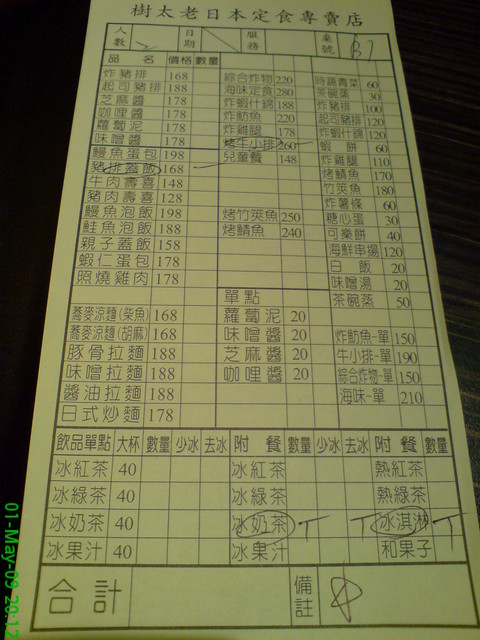 樹太老日本定食專賣店
人數 2 日期 服務 桌號 B7
品名 價格 數量
炸豬排 168 綜合炸物 220 時蔬青菜 60
起司豬排 188 海味定食 280 茶碗蒸 30
芝麻醬 178 炸蝦什錦 188 炸豬排 100
咖哩醬 178 炸魴魚 220 起司豬排 120
蘿蔔泥 178 炸雞腿 178 炸蝦什錦 120
味噌醬 178 烤牛小排 260 蝦餅 60
鰻魚蛋包 198 兒童餐 148 炸雞腿 110
豬排蓋飯 168 烤鯖魚 170
牛肉壽喜 148 竹筴魚 180
豬肉壽喜 128 炸薯條 60
鰻魚泡飯 198 烤竹筴魚 250 糖心蛋 30
鮭魚泡飯 188 烤鯖魚 240 可樂餅 40
親子蓋飯 158 海鮮串揚 120
蝦仁蛋包 178 白飯 20
照燒雞肉 178 味噌湯 20
單點 茶碗蒸 50
蕎麥涼麵(柴魚) 168 蘿蔔泥 20
蕎麥涼麵(胡麻) 168 味噌醬 20 炸魴魚-單 150
豚骨拉麵 188 芝麻醬 20 牛小排-單 190
味噌拉麵 188 咖哩醬 20 綜合炸物-單 150
醬油拉麵 188 海味-單 210
日式炒麵 178
飲品單點 大杯 數量 少冰 去冰 附餐 數量 少冰 去冰 附餐 數量
冰紅茶 40 冰紅茶 熱紅茶
冰綠茶 40 冰綠茶 熱綠茶
冰奶茶 40 冰奶茶 T T 冰淇淋 T
冰果汁 40 冰果汁 和果子
合計 備註
01-May-09 20:12